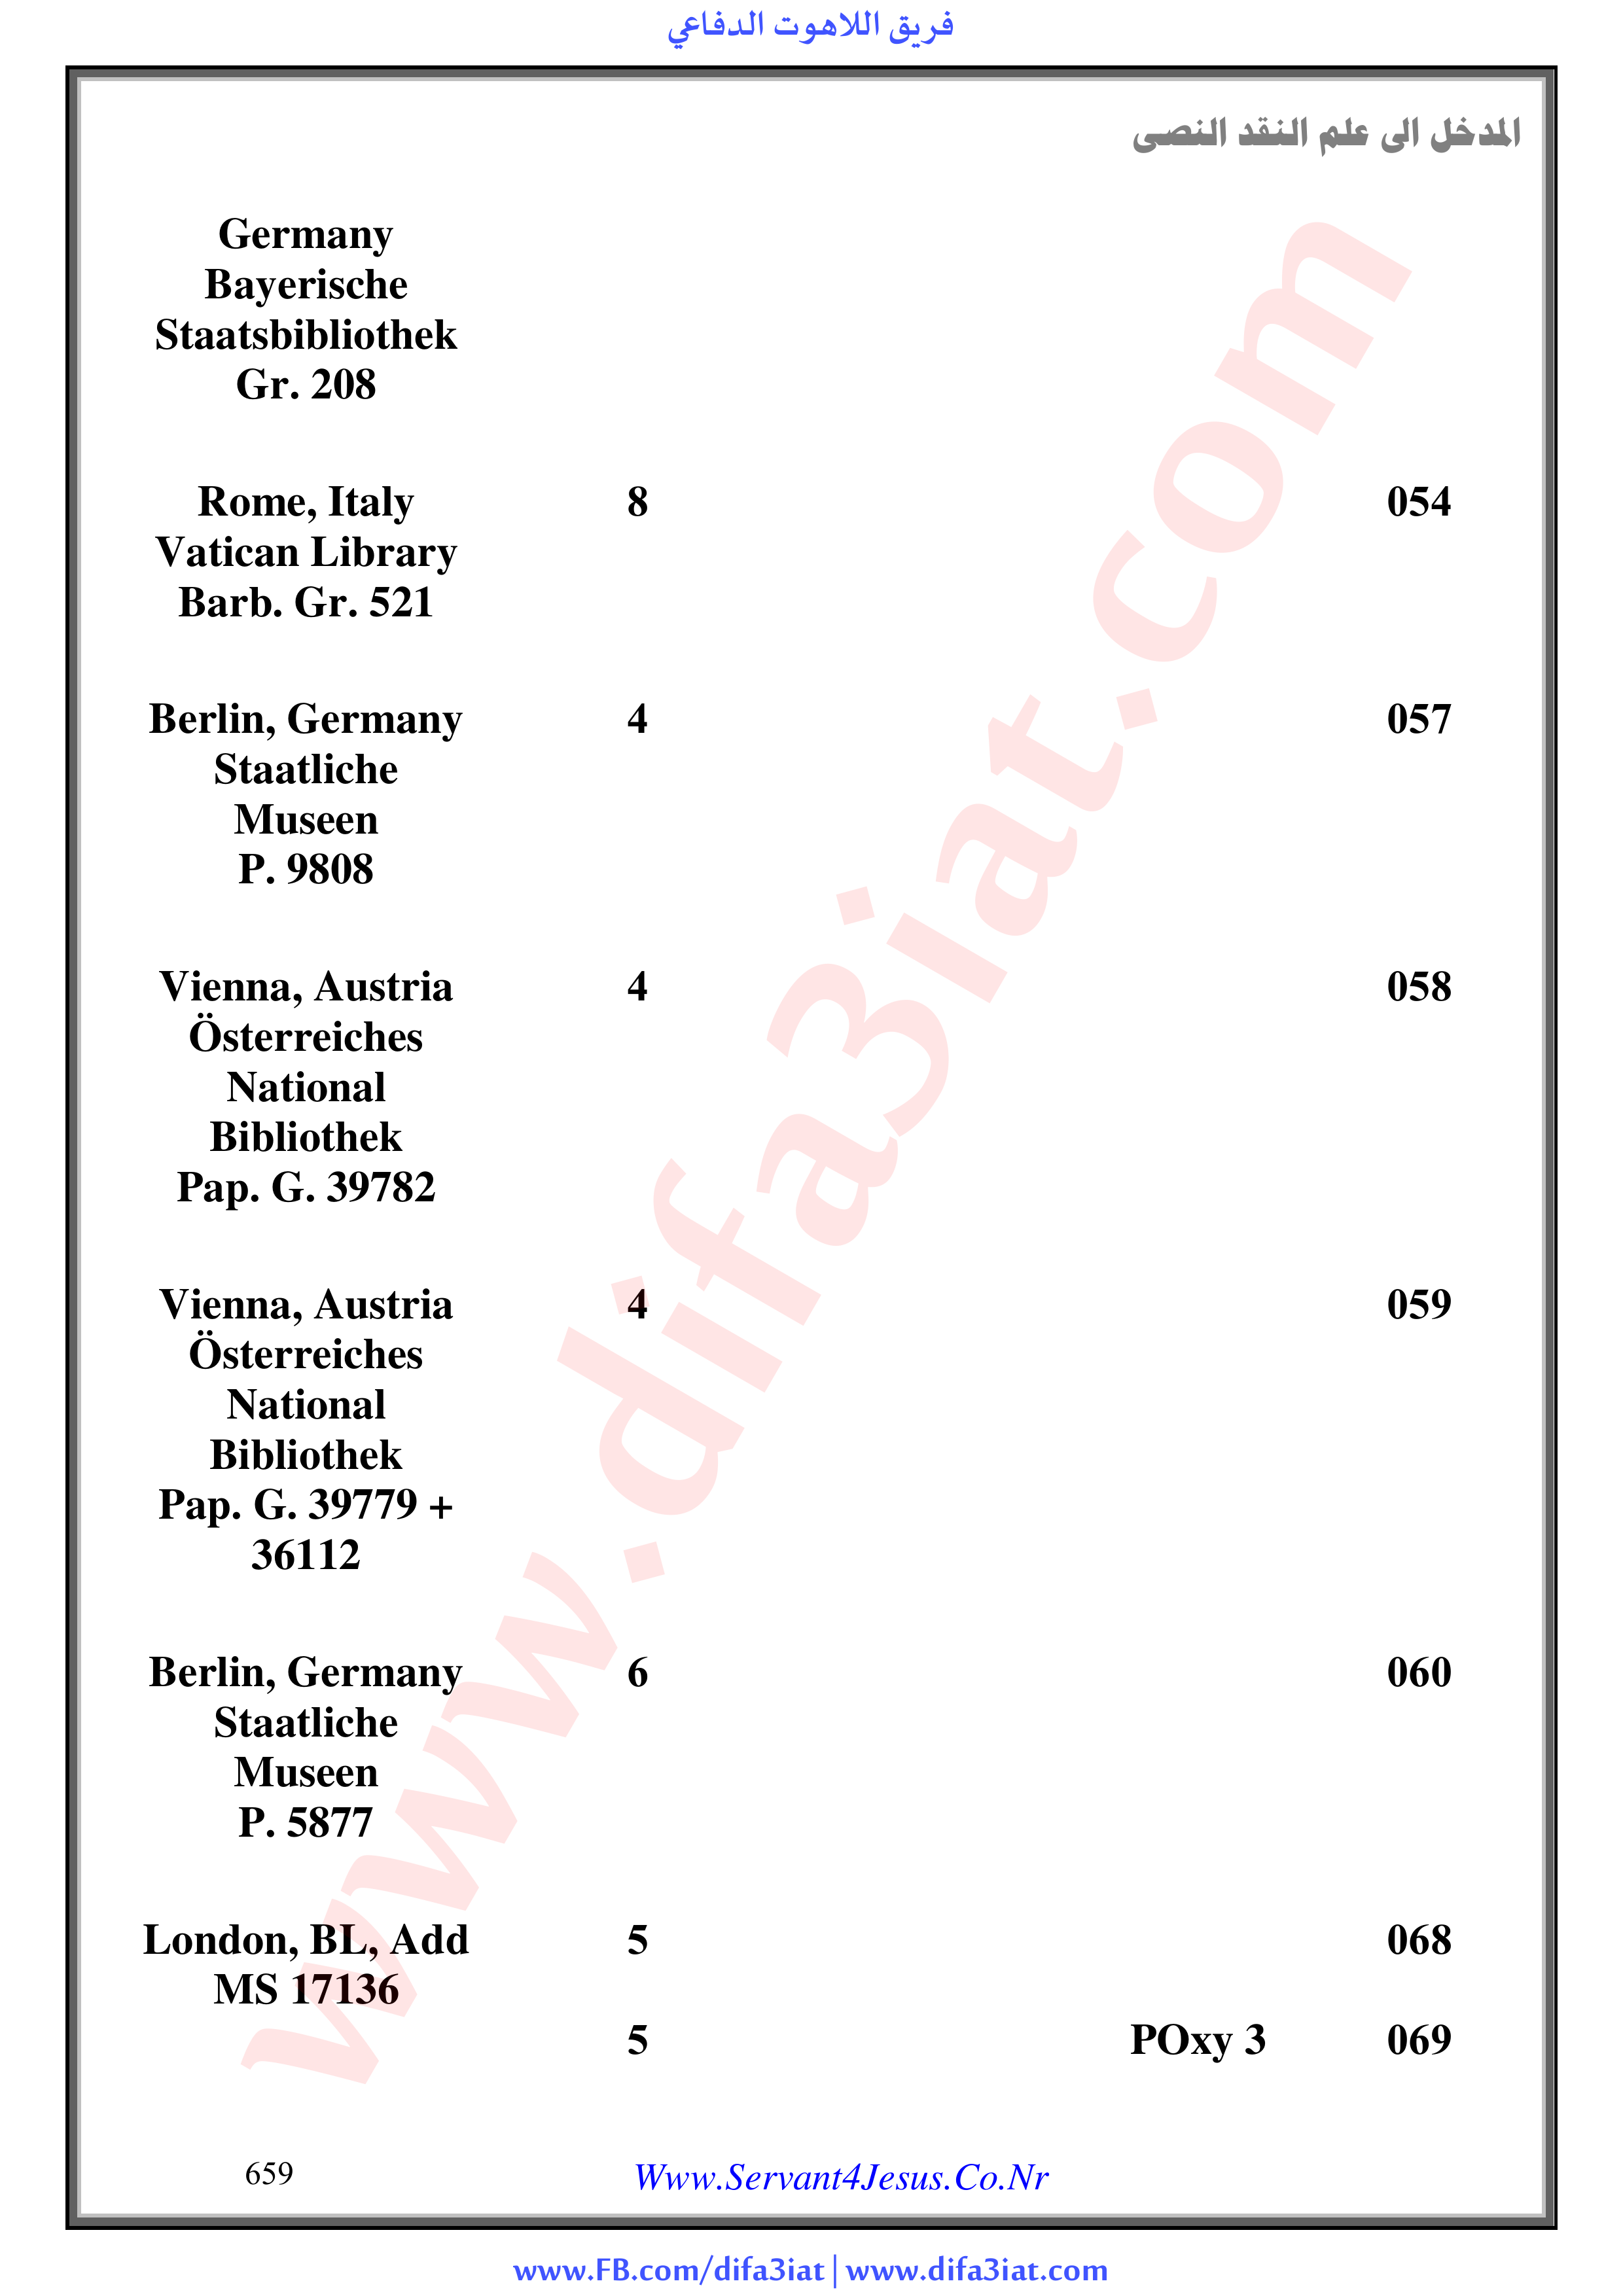 فريق اللاهوت الدفاعي
المدخل الى علم النقد النصى
Germany
Bayerische
Staatsbibliothek
Gr. 208
Rome, Italy 8 054
Vatican Library
Barb. Gr. 521
Berlin, Germany 4 057
Staatliche
Museen
P. 9808
Vienna, Austria 4 058
Österreiches
National
Bibliothek
Pap. G. 39782
Vienna, Austria 4 059
Österreiches
National
Bibliothek
Pap. G. 39779 +
36112
Berlin, Germany 6 060
Staatliche
Museen
P. 5877
London, BL, Add 5 068
MS 17136
5 POxy 3 069
www.difa3iat.com
659 Www.Servant4Jesus.Co.Nr
www.FB.com/difa3iat | www.difa3iat.com